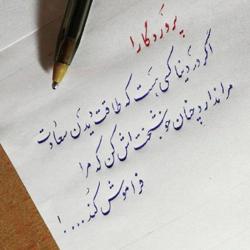 پروردگارا
اگر در دنیا کسی هست که طاقت دیدن سعادت
مرا ندارد چنان خوشبختش کن که مرا
فراموش کند....!